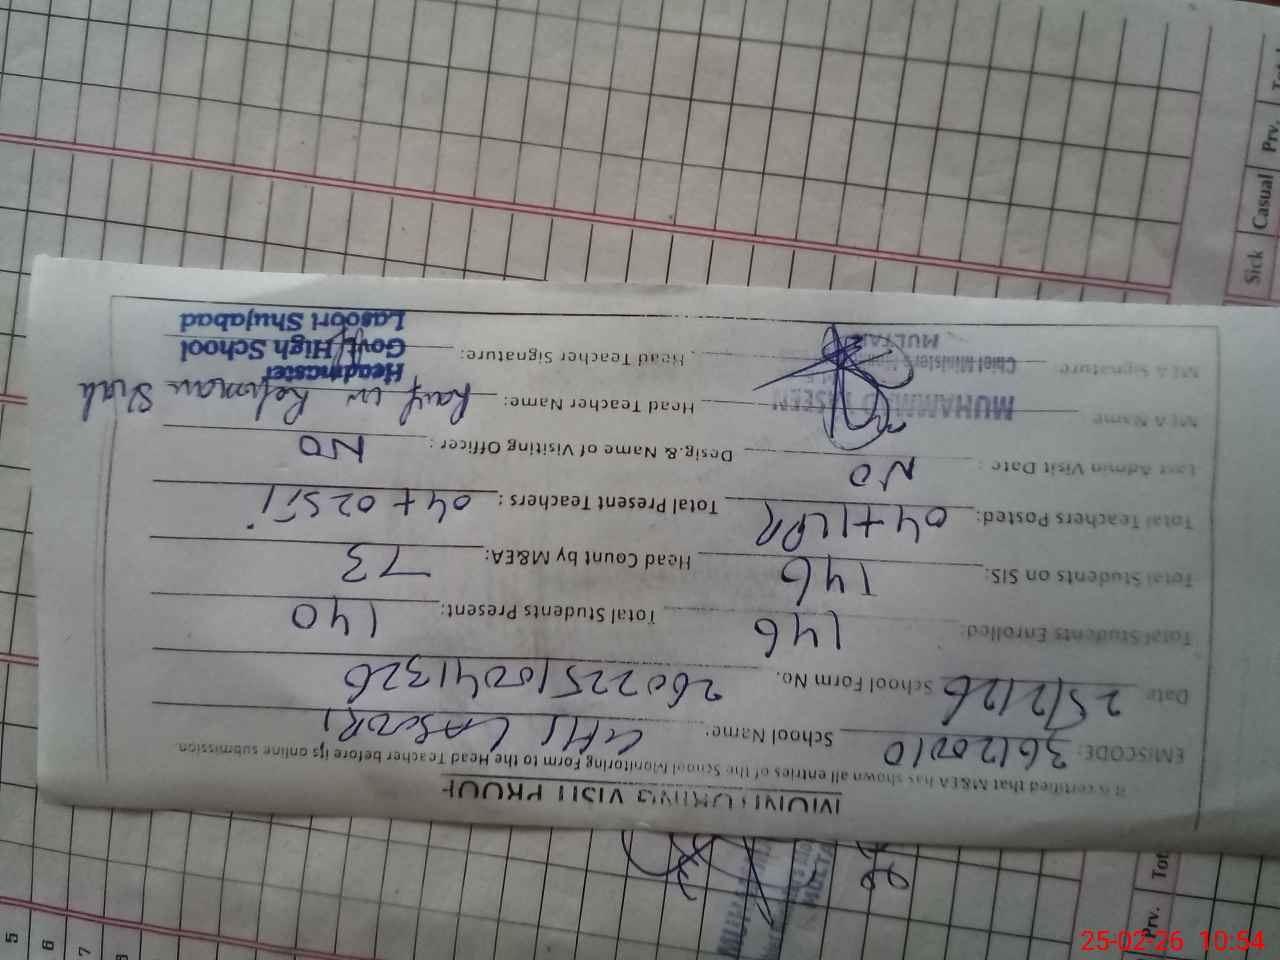 MONITORING VISIT PROOF
It is certified that M&EA has shown all entries of the School Monitoring Form to the Head Teacher before its online submission.
EMISCODE: 36120010 School Name: GHS LASOORI
Date 25/2/26 School Form No. 26022510041326
Total Students Enrolled: 146 Total Students Present: 140
Total Students on SIS: 146 Head Count by M&EA: 73
Total Teachers Posted: 04+1LPR Total Present Teachers: 04+02STI
Last Admin Visit Date: NO Desig.& Name of Visiting Officer: NO
MEA Name Head Teacher Name: Rauf ur Rehman Sial
MUHAMMAD
MEA Signature: Head Teacher Signature:
Chief Minister's
MULTAN
Headmaster
Govt. High School
Lasoori Shujabad
Sick Casual Prv. Total
Prv. Tot
5
6
7
8
25-02-26 10:54